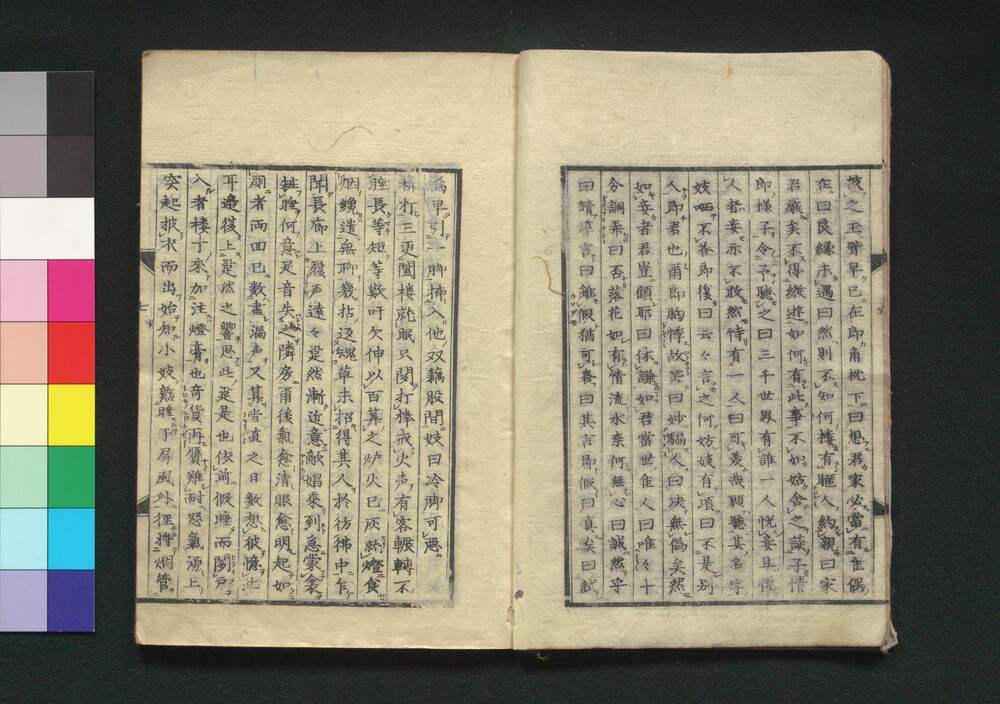 之玉臂早已在即角枕下曰想君家必當有佳偶
在曰良縁未遇曰然則不知何樓有麗人約親曰家
君嚴矣不得縱遊如何有此事不如姑舍之談子情
郎様子令予聽之曰三千世界有誰一人悦妾且慢
人者妾亦不敢然特有一人曰可羨哉願聽其名字
妓哂不答即復曰云々言之何妨妓有頃曰不是別
人即君也甫郎胸悸故笑曰妙騙人曰決無偽矣然
如妾者君豈顧耶曰休謙如君當世佳人曰唯々十
分調弄曰否落花如有情流水奈何無心曰誠然乎
曰請誓言曰雖假猶可喜曰其言為假曰真矣曰試
為早引一脚挿入他双藕股間妓曰冷御可悪
柝打三更闔楼就眠只聞打棒戒火声有客輾轉不
睡長等短等數吁欠伸以百算之炉火已灰紙燈食
烟纔遣無聊幾拈返魂草未招得其人於彷彿中乍
聞長廊上履声遠々跫然漸近意敵娼來到急蒙衾
粧睡何意是音失之隣房甫後氣愈清眼愈明起如
厠者兩回已數盡漏声又算當直之日數想彼憶此
耳邉復上跫然之響思此跫是也依前假睡而闔戸
入者楼丁來加注燈膏也奇貨再贋難耐怒氣湧上
突起披衣而出始知小妓熟睡于屏風外徑持烟管